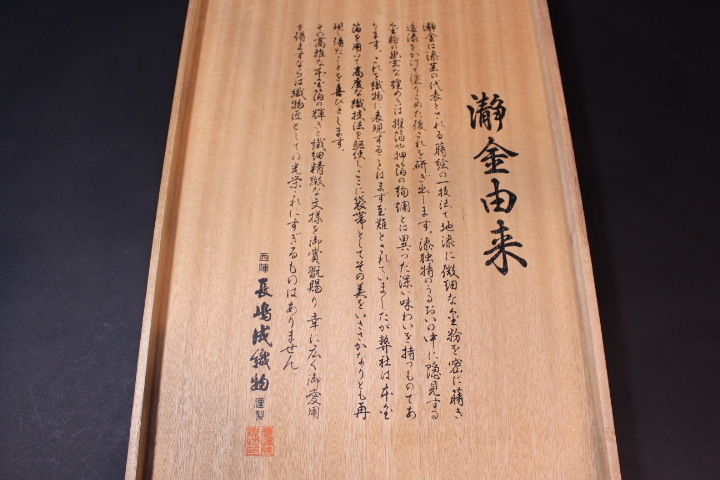 瀞金由来
瀞金は漆芸の代表とされる蒔絵の一技法で地漆に微細な金粉を密に蒔き
透漆をかけて塗りこめた後これを研ぎ出します。漆独特のうるおいの中に隠見する
金粉の幽玄な煌めきは撰箔や押箔の絢爛とは異った深い味わいを持つものであ
ります。これを織物に表現することはまず至難とされていましたが弊社は本金
箔を用いて高度な織技法を駆使しここに袋帯としてその美をいささかなりとも再
現し得たことを喜びとします。
その高雅な本金箔の輝きと繊細精緻な文様を御賞翫賜り幸に広く御愛用
を得ますならば織物匠としての光栄これにすぎるものはありません
西陣 長嶋成織物 謹製